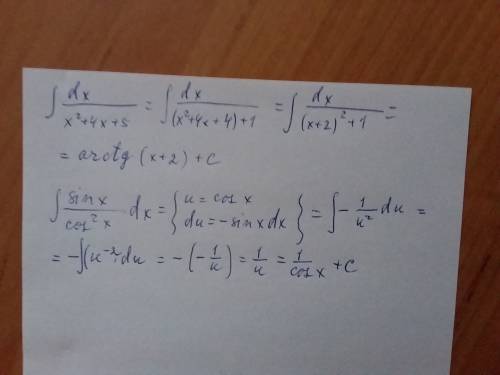 ∫ dx/(x²+4x+5) = ∫ dx/((x²+4x+4)+1) = ∫ dx/((x+2)²+1) =
= arctg (x+2) + C
∫ sin x/cos² x dx = { u = cos x du = -sin x dx } = ∫ - 1/u² du =
= -∫(u⁻² du = -(-1/u) = 1/u = 1/cos x + C